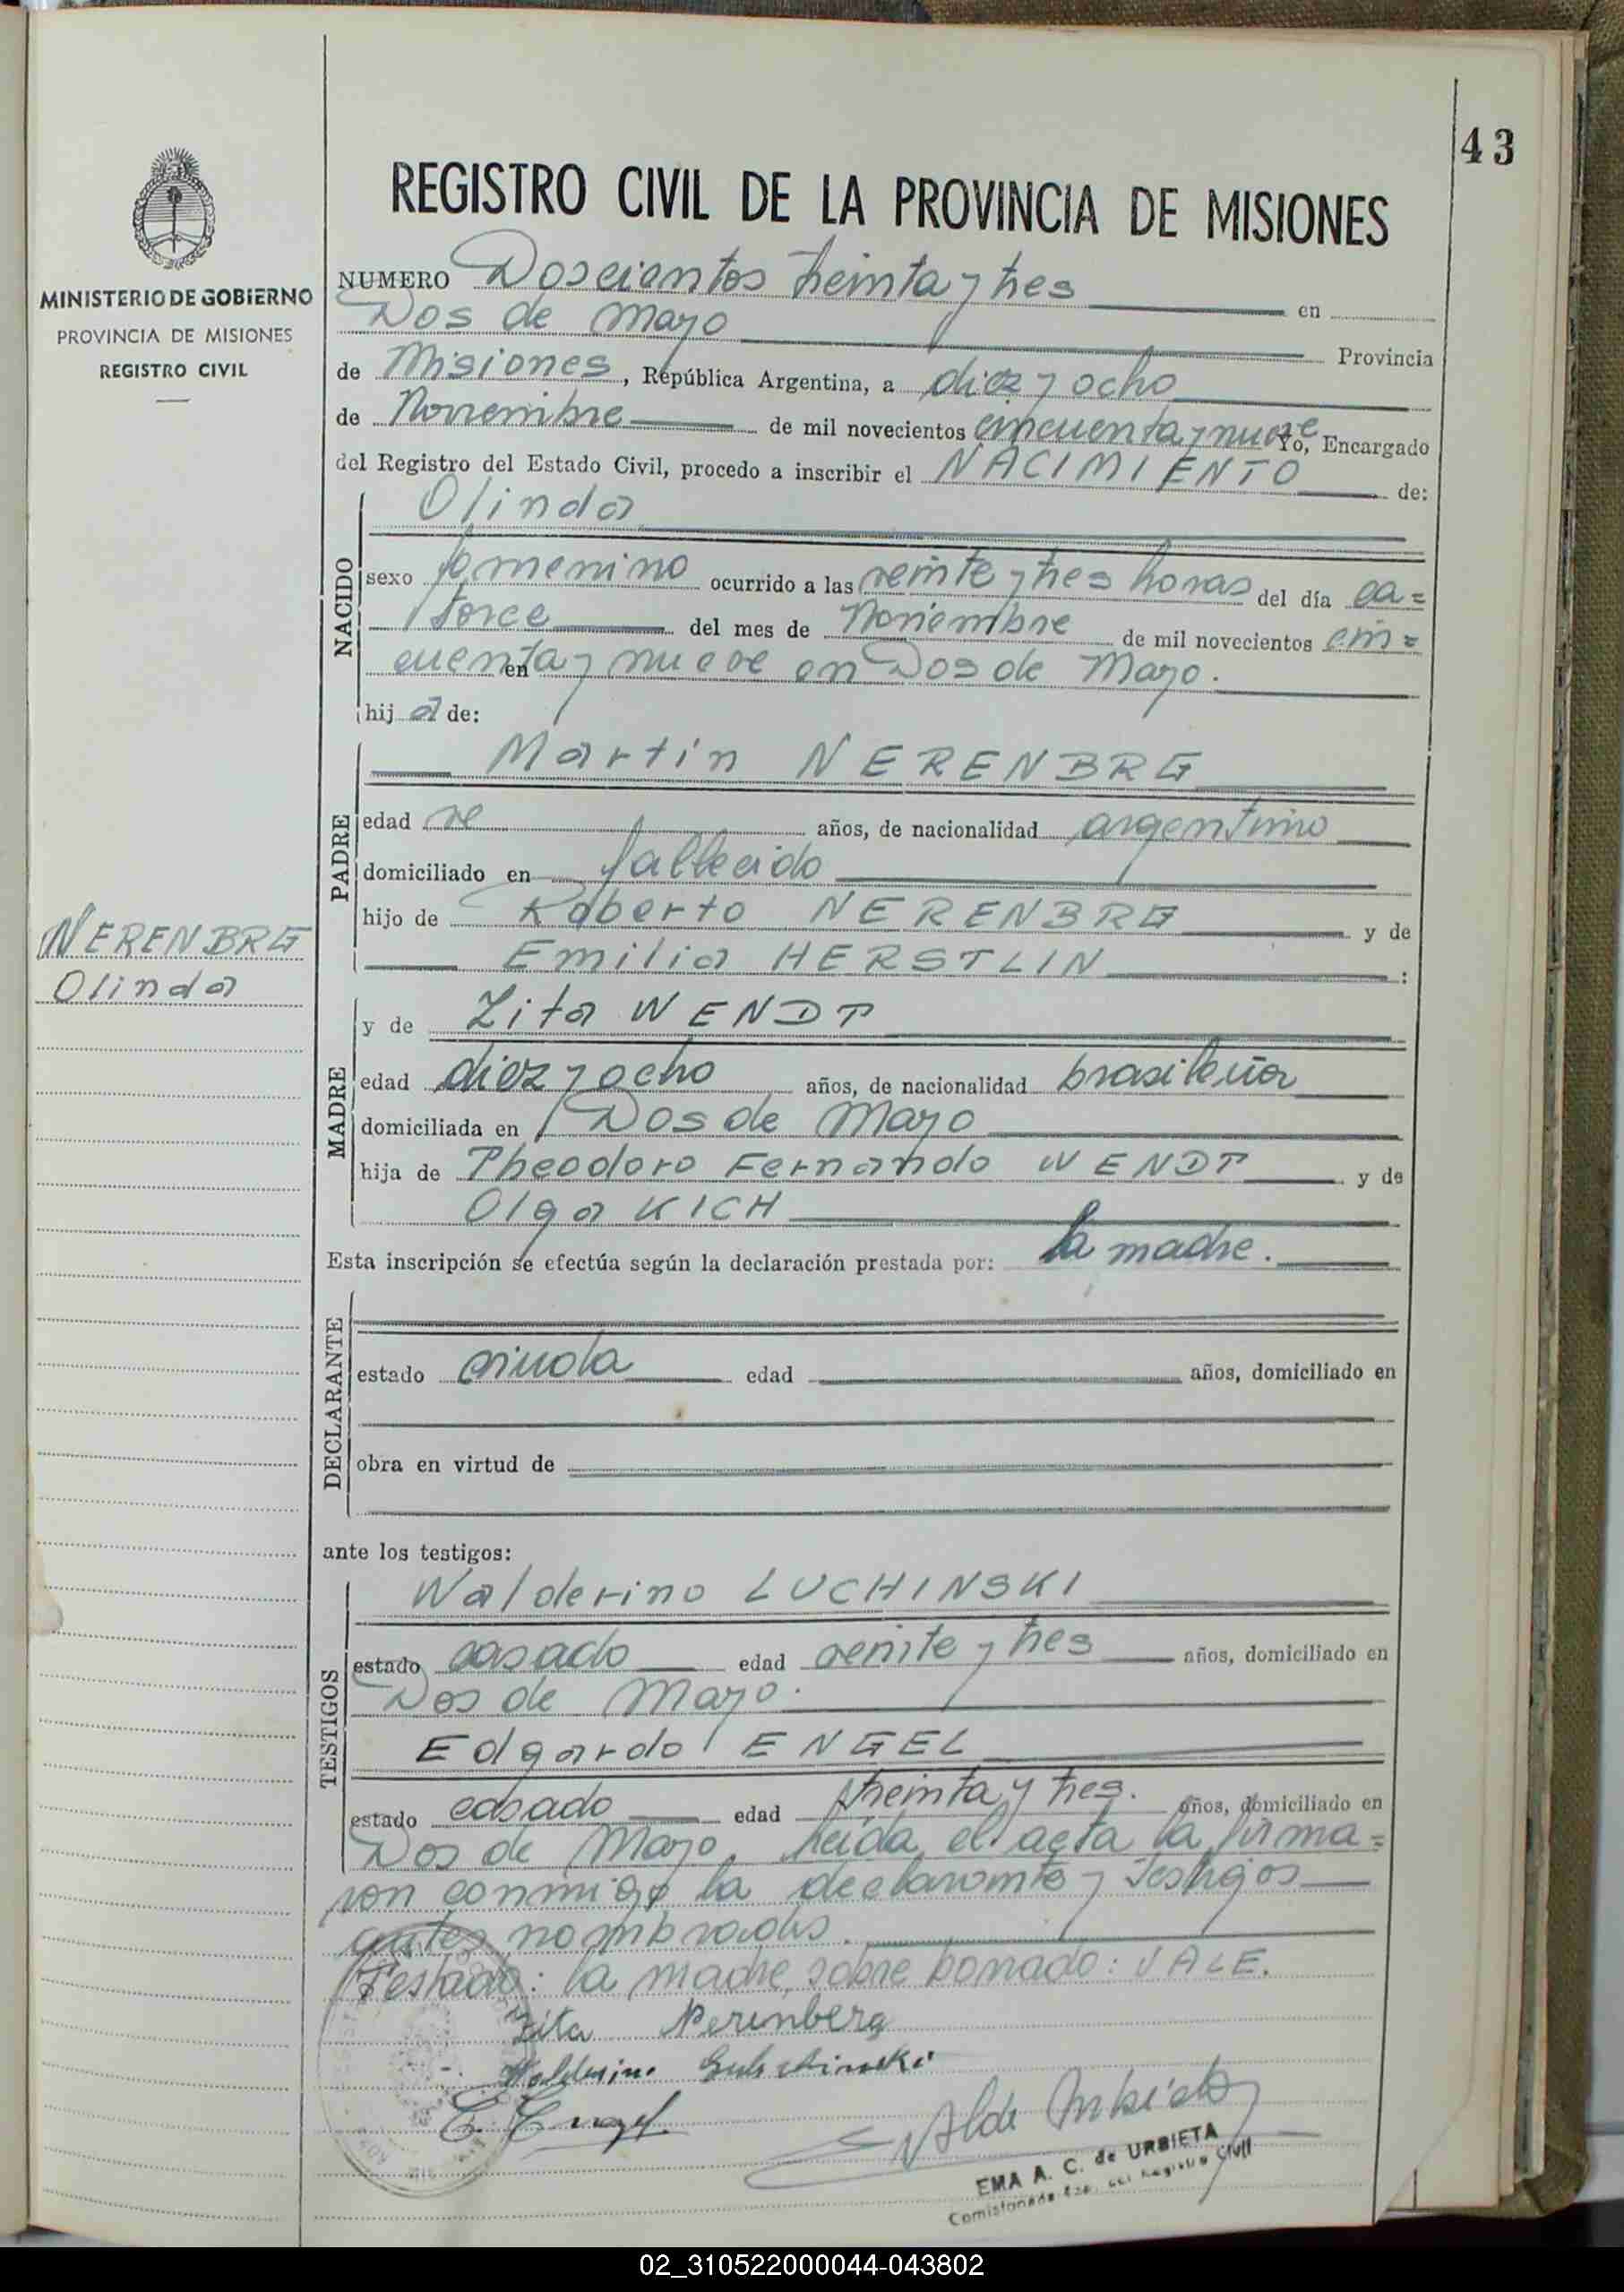 43
REGISTRO CIVIL DE LA PROVINCIA DE MISIONES
MINISTERIO DE GOBIERNO
PROVINCIA DE MISIONES
REGISTRO CIVIL
NERENBRG
Olinda
NUMERO Doscientos treinta y tres en
Dos de Mayo Provincia
de Misiones, República Argentina, a diez y ocho
de Noviembre de mil novecientos cincuenta y nueve Yo, Encargado
del Registro del Estado Civil, procedo a inscribir el NACIMIENTO de:
NACIDO
Olinda
sexo femenino ocurrido a las veinte y tres horas del día ca=
torce del mes de Noviembre de mil novecientos cin=
cuenta y nueve en en Dos de Mayo.
hija de:
PADRE
Martin NERENBRG
edad años, de nacionalidad argentino
domiciliado en fallecido
hijo de Roberto NERENBRG y de
Emilia HERSTLIN :
MADRE
y de Zita WENDT
edad diez y ocho años, de nacionalidad brasileña
domiciliada en Dos de Mayo
hija de Theodoro Fernando WENDT y de
Olga KICH
Esta inscripción se efectúa según la declaración prestada por: la madre.
DECLARANTE
estado viuda edad años, domiciliado en
obra en virtud de
ante los testigos:
TESTIGOS
Walderino LUCHINSKI
estado casado edad veinte y tres años, domiciliado en
Dos de Mayo.
Edgardo ENGEL
estado casado edad treinta y tres. años, domiciliado en
Dos de Mayo, leída el acta la firma=
ron conmigo la declarante y testigos
antes nombrados.
Testado: la madre, sobre borrado: VALE.
Zita Nerenberg
E. Engel
EMA A. C. de URBIETA
Registro Civil
02_310522000044-043802